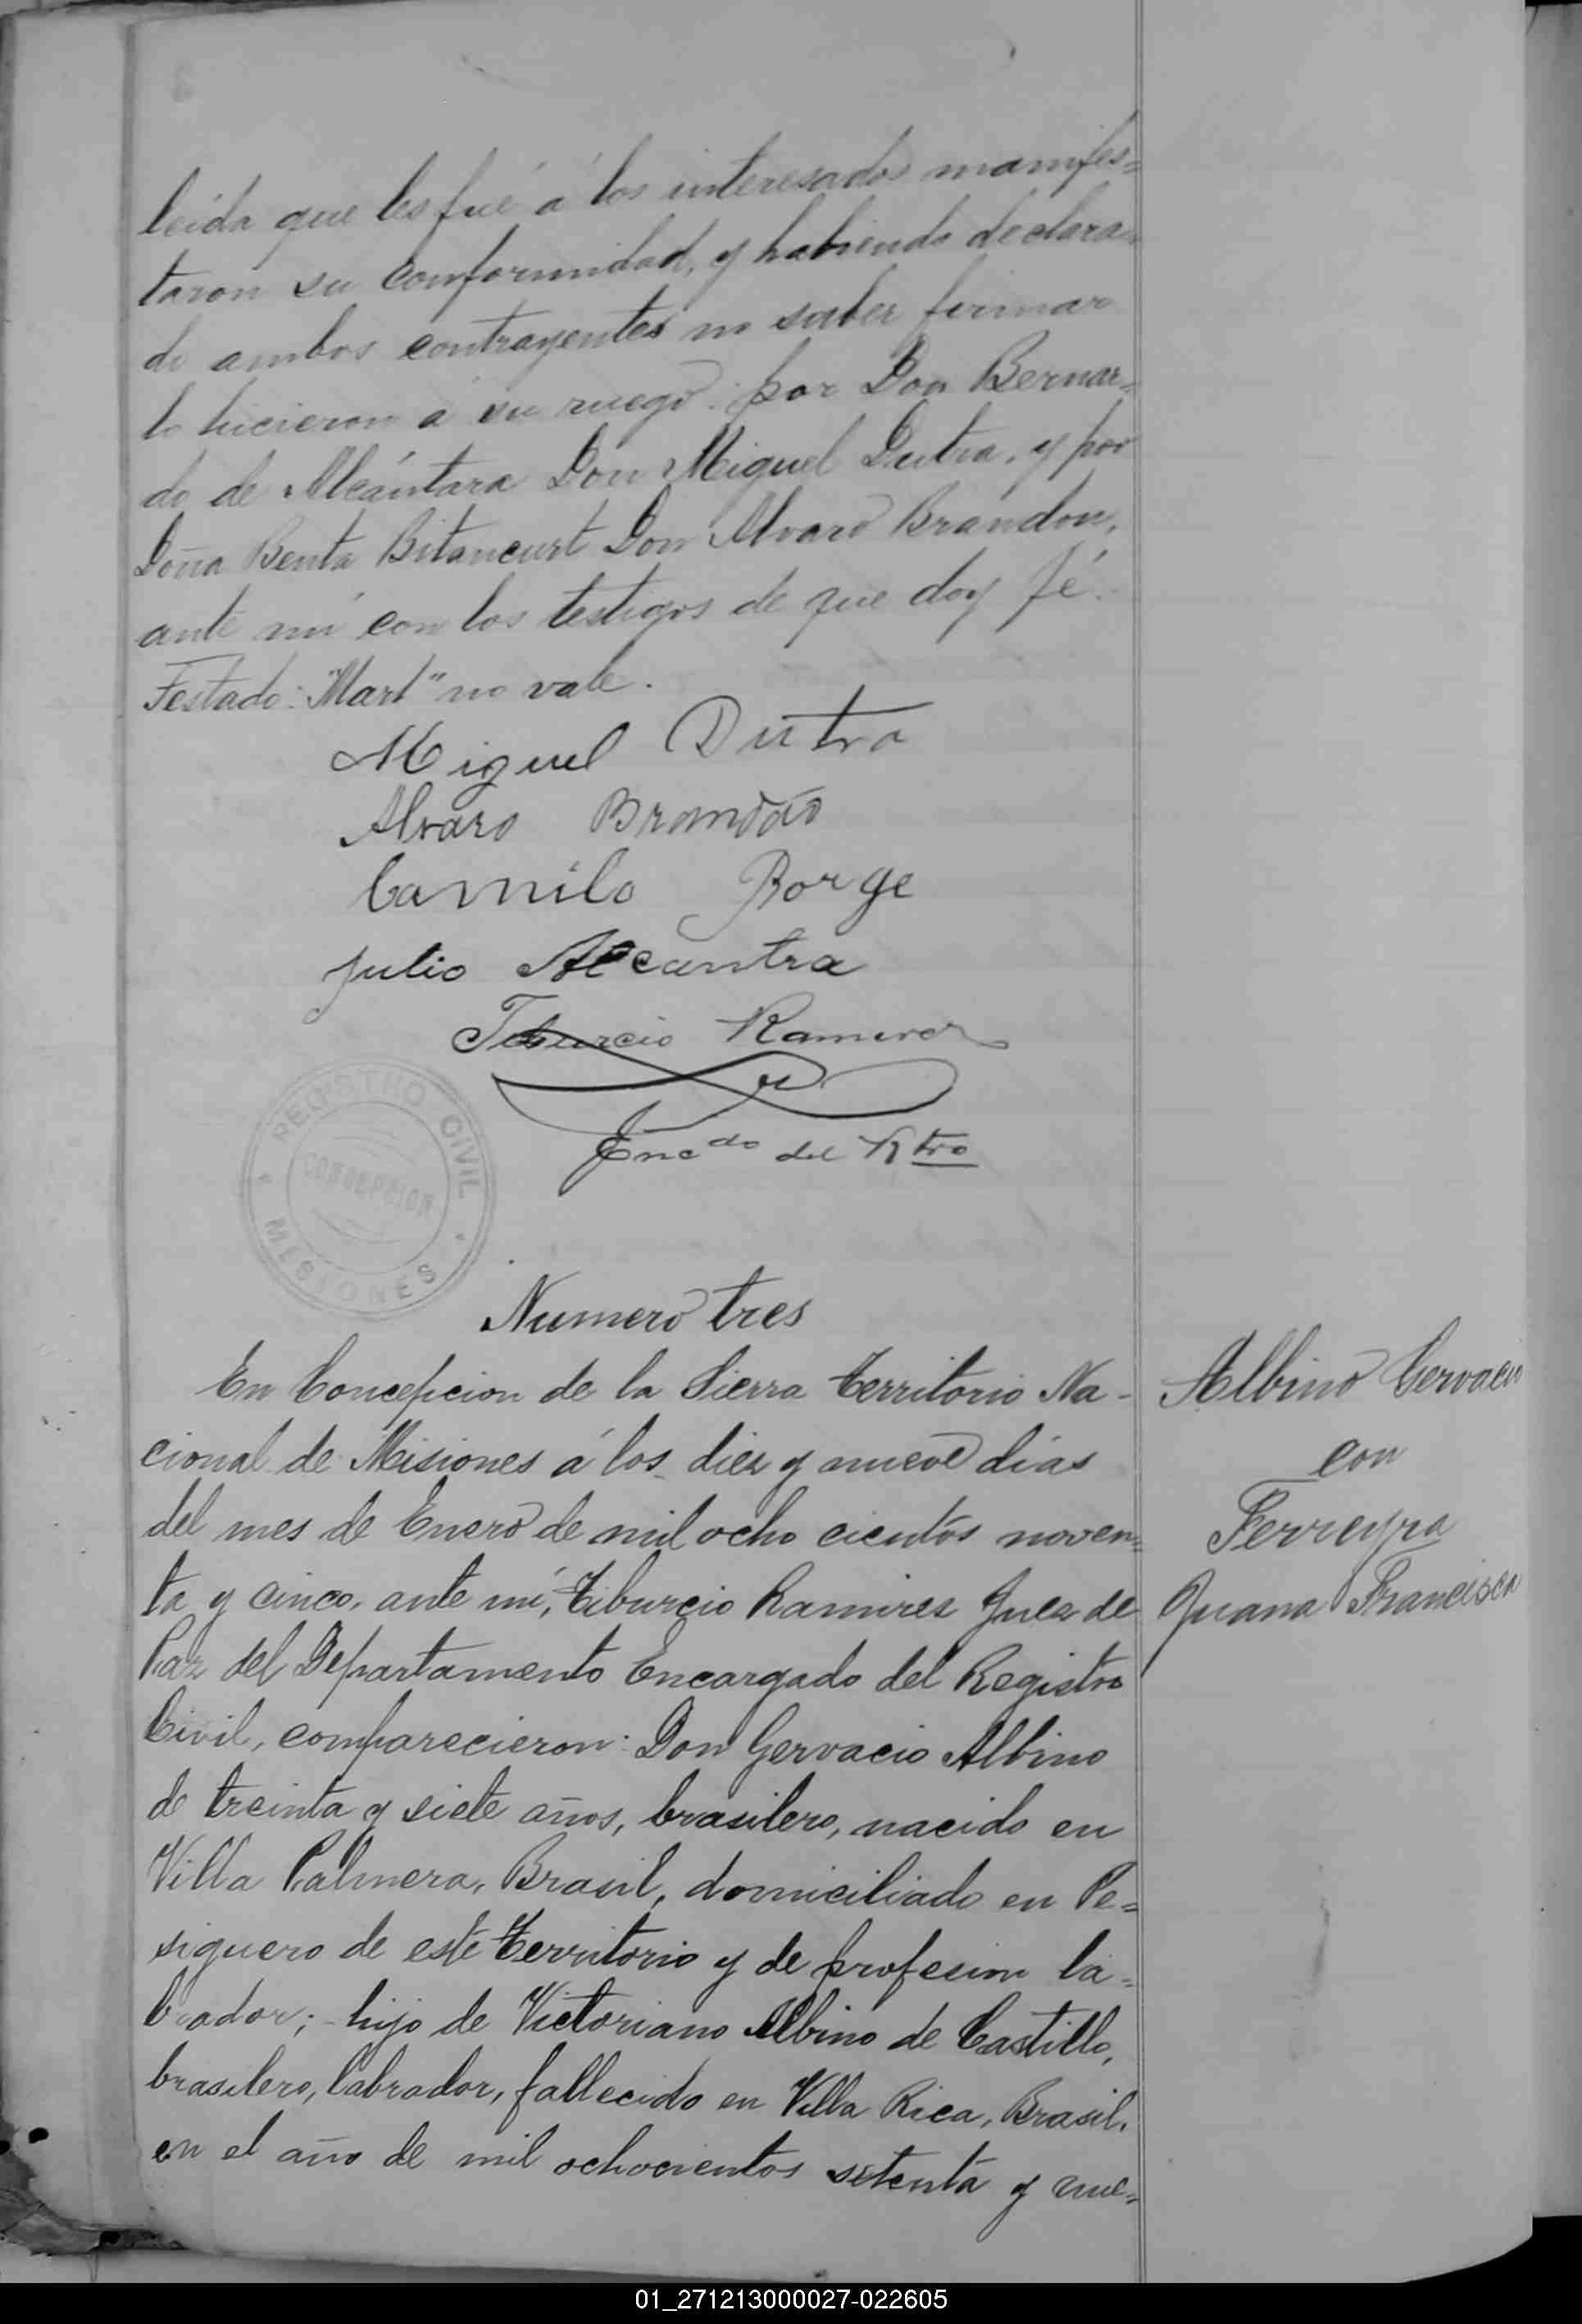 leida que les fué á los interesados manifes=
taron su conformidad, y habiendo declara=
do ambos contrayentes no saber firmar
lo hicieron á su ruego: por Don Bernar=
do de Alcántara Don Miguel Dutra, y por
Doña Benta Bitancurt Don Alvaro Brandon,
ante mi con los testigos de que doy fé.
Testado: "Mart" no vale.
Miguel Dutra
Alvaro Brandão
Camilo Borge
Julio Alcantra
Tiburcio Ramirez
Encdo del Rtro
REGISTRO CIVIL
CONCEPCION
MISIONES
Numero tres
En Concepcion de la Sierra Territorio Na-
cional de Misiones á los diez y nueve dias
del mes de Enero de mil ocho cientos noven=
ta y cinco, ante mi, Tiburcio Ramires Juez de
Paz del Departamento Encargado del Registro
Civil, comparecieron: Don Gervacio Albino
de treinta y siete años, brasilero, nacido en
Villa Palmera, Brasil, domiciliado en Pe=
siguero de este Territorio y de profesion la=
brador; hijo de Victoriano Albino de Castillo,
brasilero, labrador, fallecido en Villa Rica, Brasil,
en el año de mil ochocientos setenta y nue=
Albino Gervacio
con
Ferreyra
Juana Francisca
01_271213000027-022605